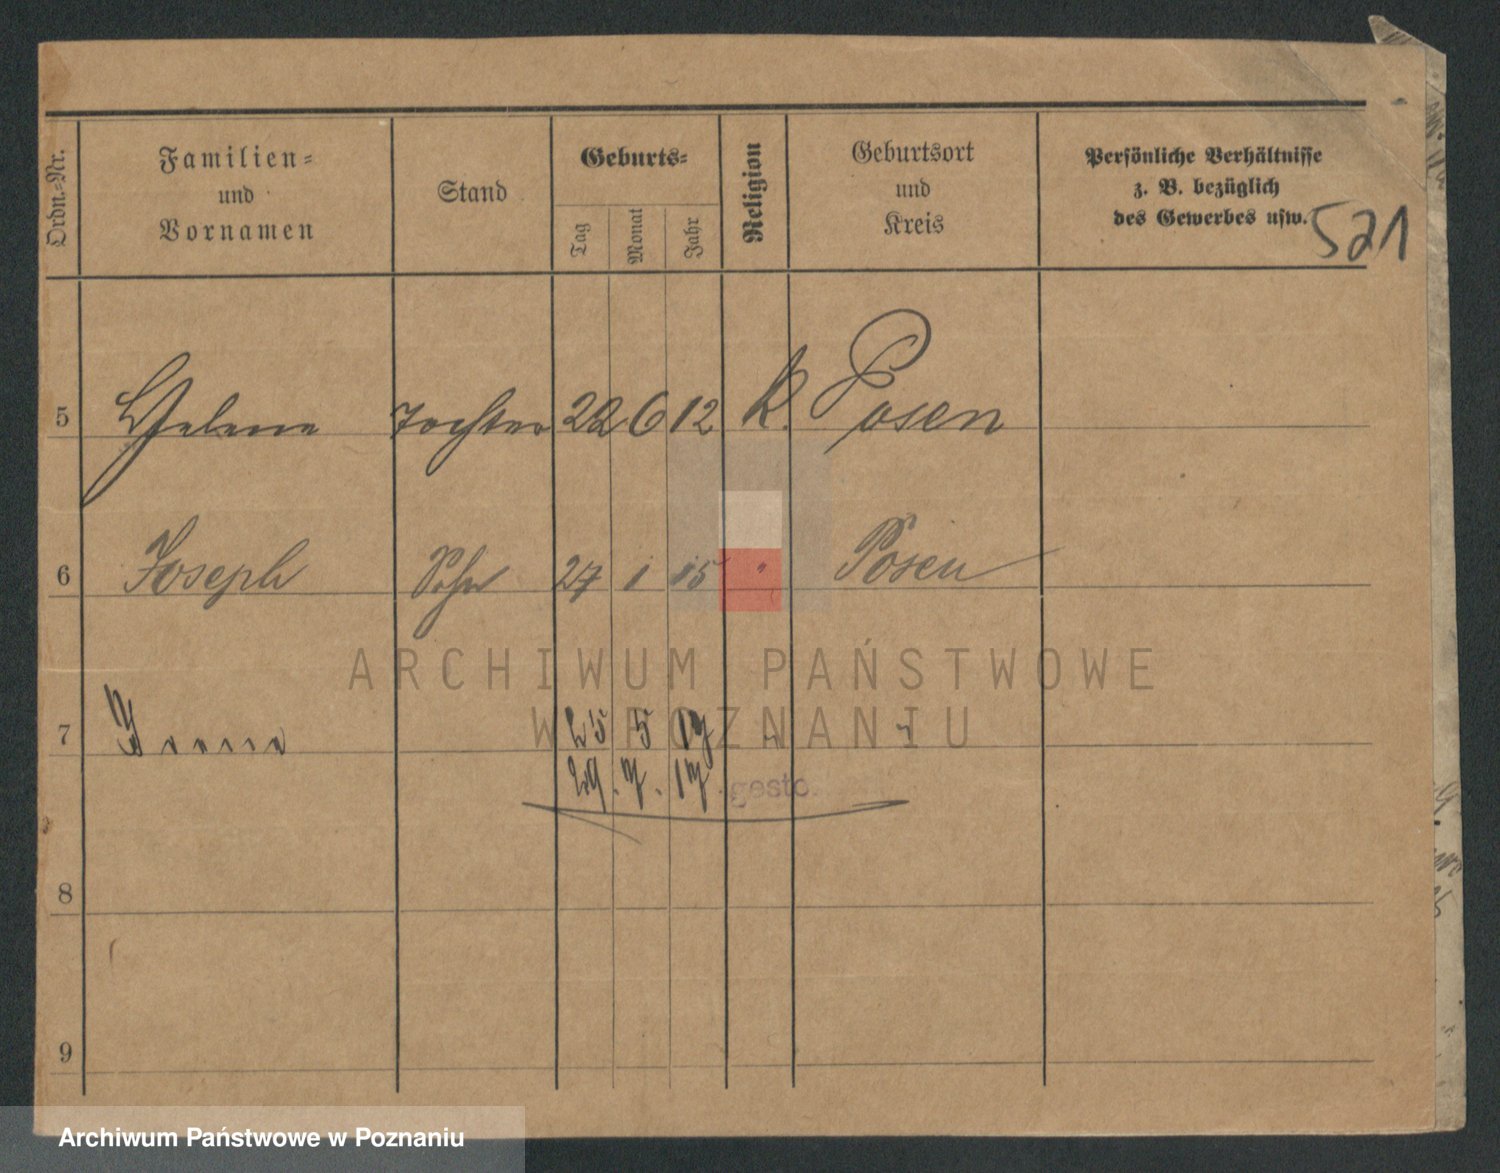 Ordn.-Nr.
Familien-
und
Vornamen
Stand
Geburts-
Tag
Monat
Jahr
Religion
Geburtsort
und
Kreis
Persönliche Verhältnisse
z. B. bezüglich
des Gewerbes usw.
521
5 Helene Tochter 22 6 12 k. Posen
6 Joseph Sohn 27 1 15 " Posen
7 25 5 17 " "
29. 7. 17. gesto
8
9
ARCHIWUM PAŃSTWOWE
W POZNANIU
Archiwum Państwowe w Poznaniu